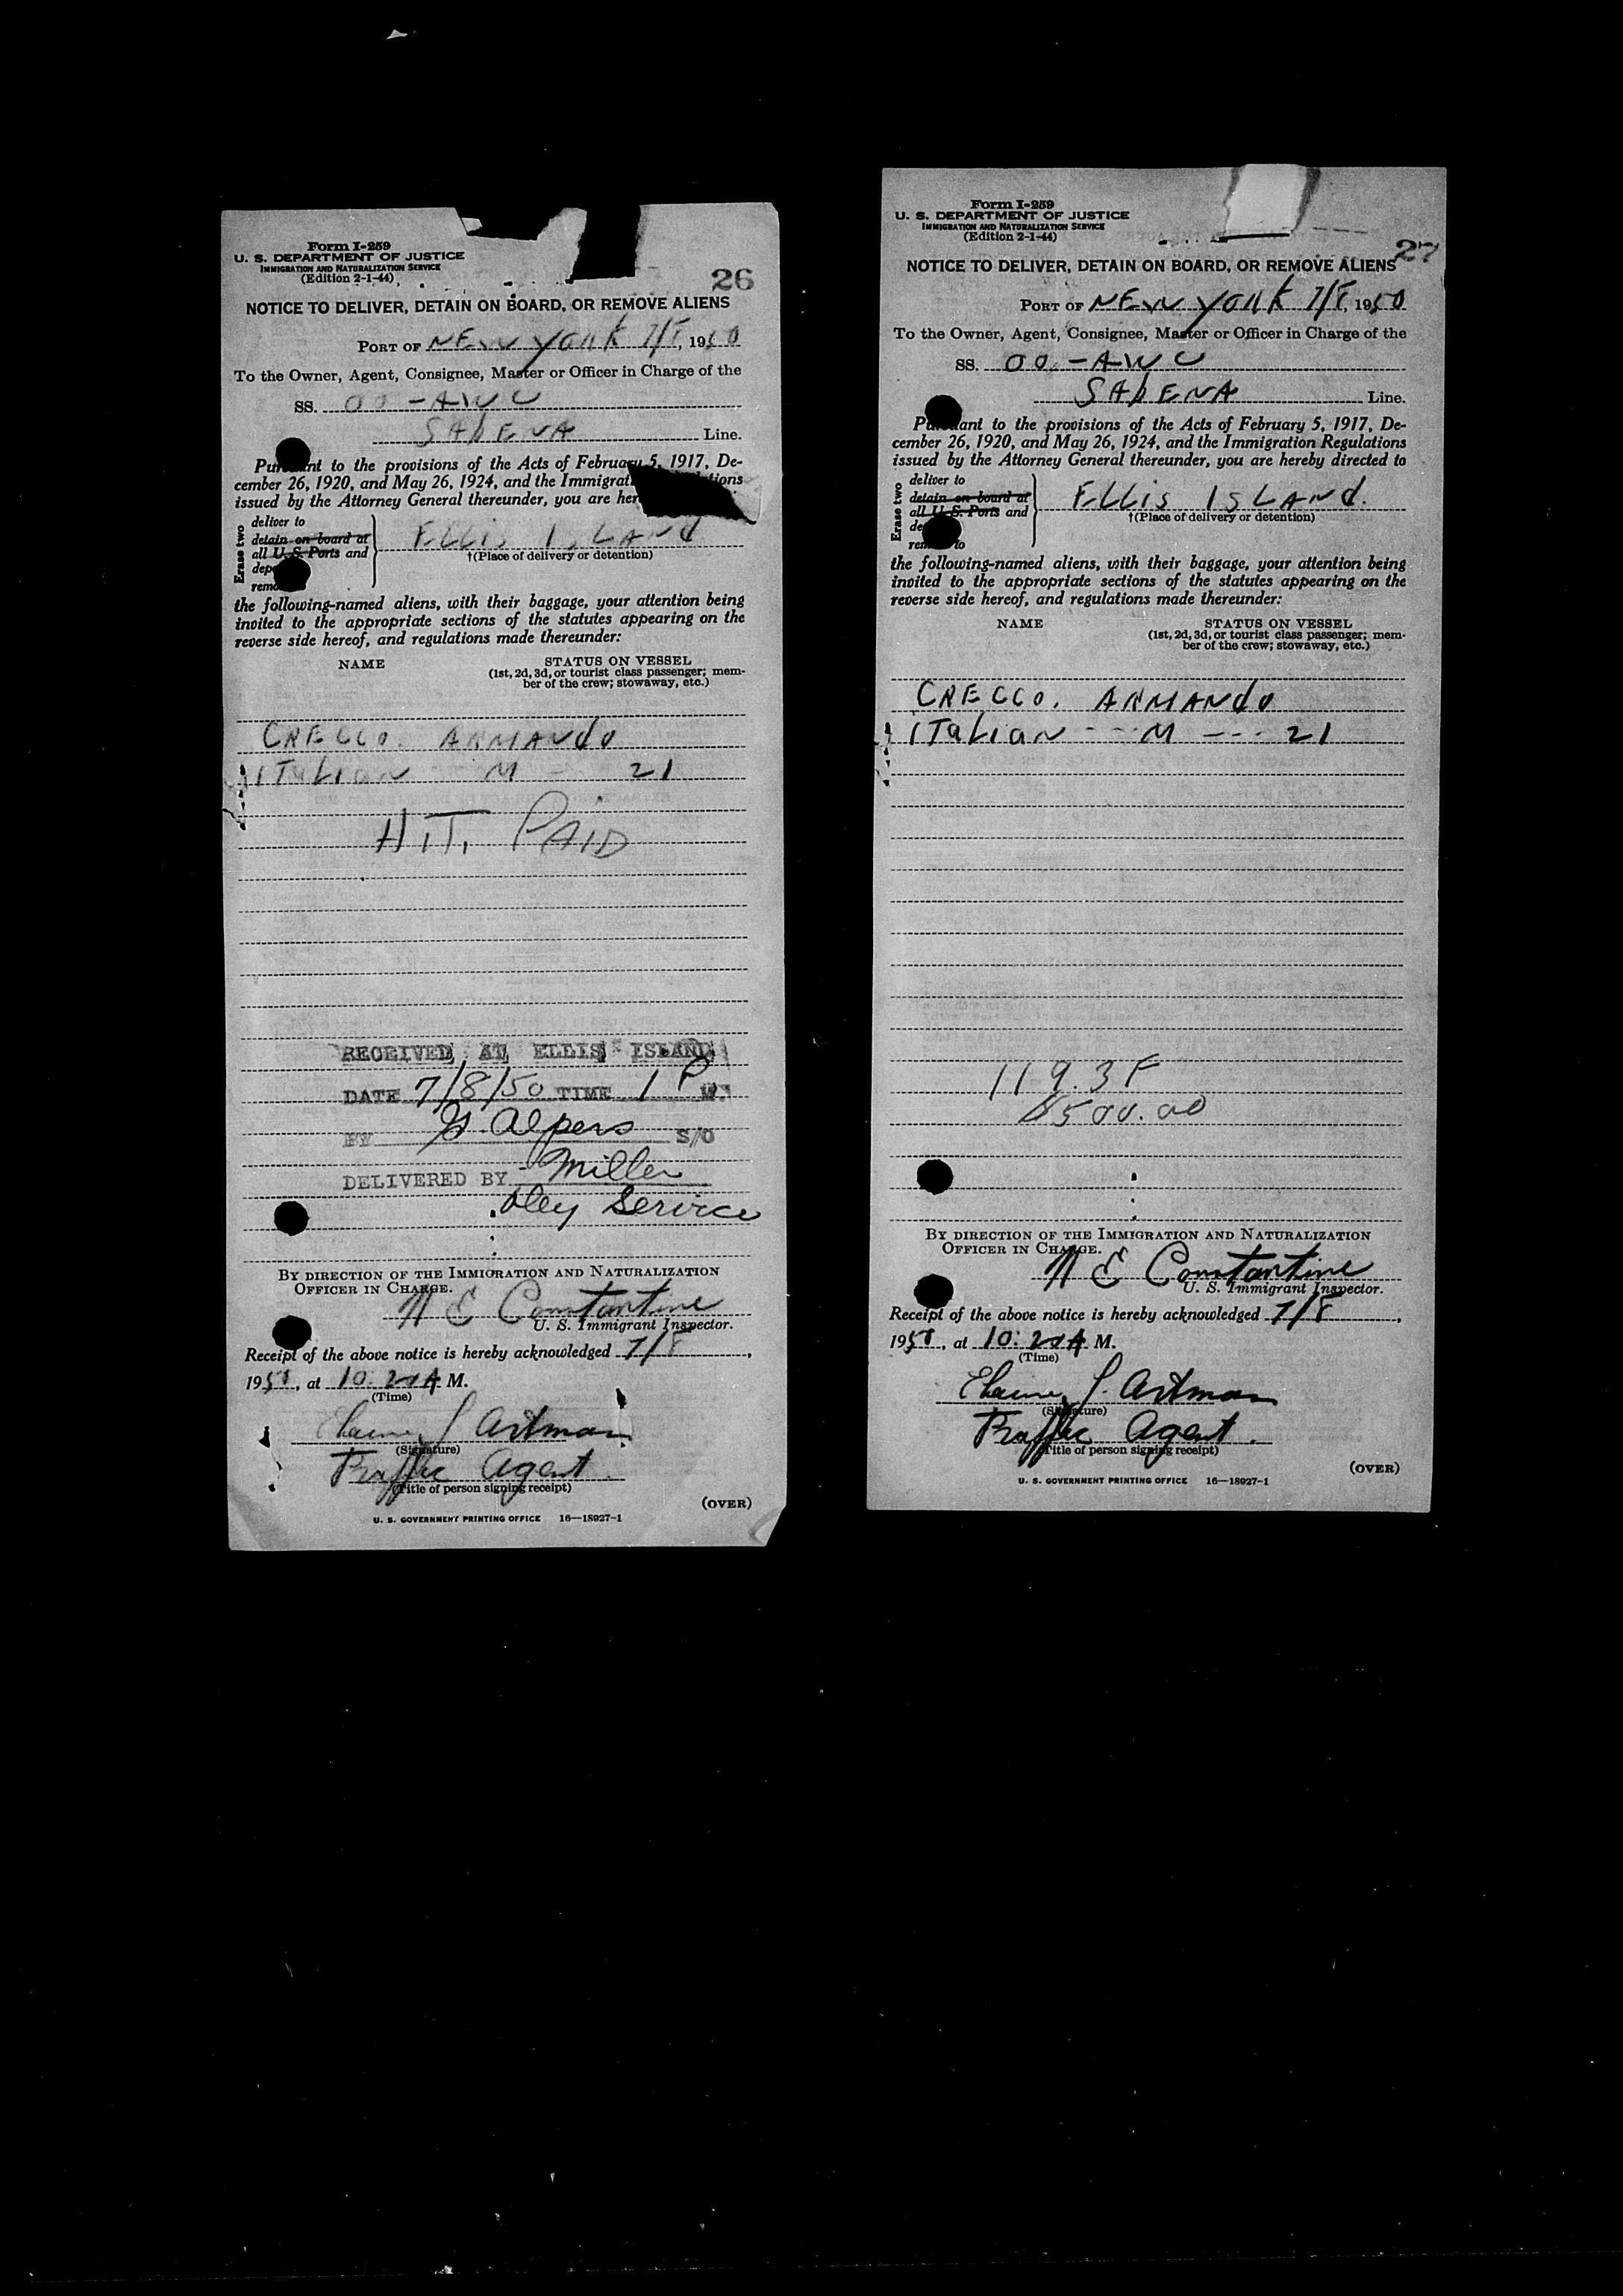 Form I-259
U. S. DEPARTMENT OF JUSTICE
IMMIGRATION AND NATURALIZATION SERVICE
(Edition 2-1-44)
26
NOTICE TO DELIVER, DETAIN ON BOARD, OR REMOVE ALIENS
PORT OF NEW YORK 7/8, 1950
To the Owner, Agent, Consignee, Master or Officer in Charge of the
SS. OO-AWC
SABENA Line.
Pursuant to the provisions of the Acts of February 5, 1917, De-
cember 26, 1920, and May 26, 1924, and the Immigrat tions
issued by the Attorney General thereunder, you are her
Erase two
deliver to
detain on board at
all U. S. Ports and
dep
remo
ELLIS ISLANd
†(Place of delivery or detention)
the following-named aliens, with their baggage, your attention being
invited to the appropriate sections of the statutes appearing on the
reverse side hereof, and regulations made thereunder:
NAME STATUS ON VESSEL
(1st, 2d, 3d, or tourist class passenger; mem-
ber of the crew; stowaway, etc.)
CRECCO. ARMANdO
ITaLian M - 21
H.T. PAID
RECEIVED AT ELLIS ISLAND
DATE 7/8/50 TIME 1 P M.
BY G. Alpers S/O
DELIVERED BY Miller
Service
BY DIRECTION OF THE IMMIGRATION AND NATURALIZATION
OFFICER IN CHARGE.
N E Constantine
U. S. Immigrant Inspector.
Receipt of the above notice is hereby acknowledged 7/8,
1950, at 10:20 A M.
(Time)
Elaine J. Artman
(Signature)
Traffic Agent
(Title of person signing receipt)
(OVER)
U. S. GOVERNMENT PRINTING OFFICE 16—18927-1
Form I-259
U. S. DEPARTMENT OF JUSTICE
IMMIGRATION AND NATURALIZATION SERVICE
(Edition 2-1-44)
27
NOTICE TO DELIVER, DETAIN ON BOARD, OR REMOVE ALIENS
PORT OF NEW YORK 7/8, 1950
To the Owner, Agent, Consignee, Master or Officer in Charge of the
SS. OO-AWC
SABENA Line.
Pursuant to the provisions of the Acts of February 5, 1917, De-
cember 26, 1920, and May 26, 1924, and the Immigration Regulations
issued by the Attorney General thereunder, you are hereby directed to
Erase two
deliver to
detain on board at
all U. S. Ports and
de
remove to
ELLIS ISLANd.
†(Place of delivery or detention)
the following-named aliens, with their baggage, your attention being
invited to the appropriate sections of the statutes appearing on the
reverse side hereof, and regulations made thereunder:
NAME STATUS ON VESSEL
(1st, 2d, 3d, or tourist class passenger; mem-
ber of the crew; stowaway, etc.)
CRECCO. ARMANdO
ITaLian -- M --- 21
119.3F
$500.00
BY DIRECTION OF THE IMMIGRATION AND NATURALIZATION
OFFICER IN CHARGE.
N E Constantine
U. S. Immigrant Inspector.
Receipt of the above notice is hereby acknowledged 7/8,
1950, at 10:20 A M.
(Time)
Elaine J. Artman
(Signature)
Traffic Agent.
(Title of person signing receipt)
(OVER)
U. S. GOVERNMENT PRINTING OFFICE 16—18927-1